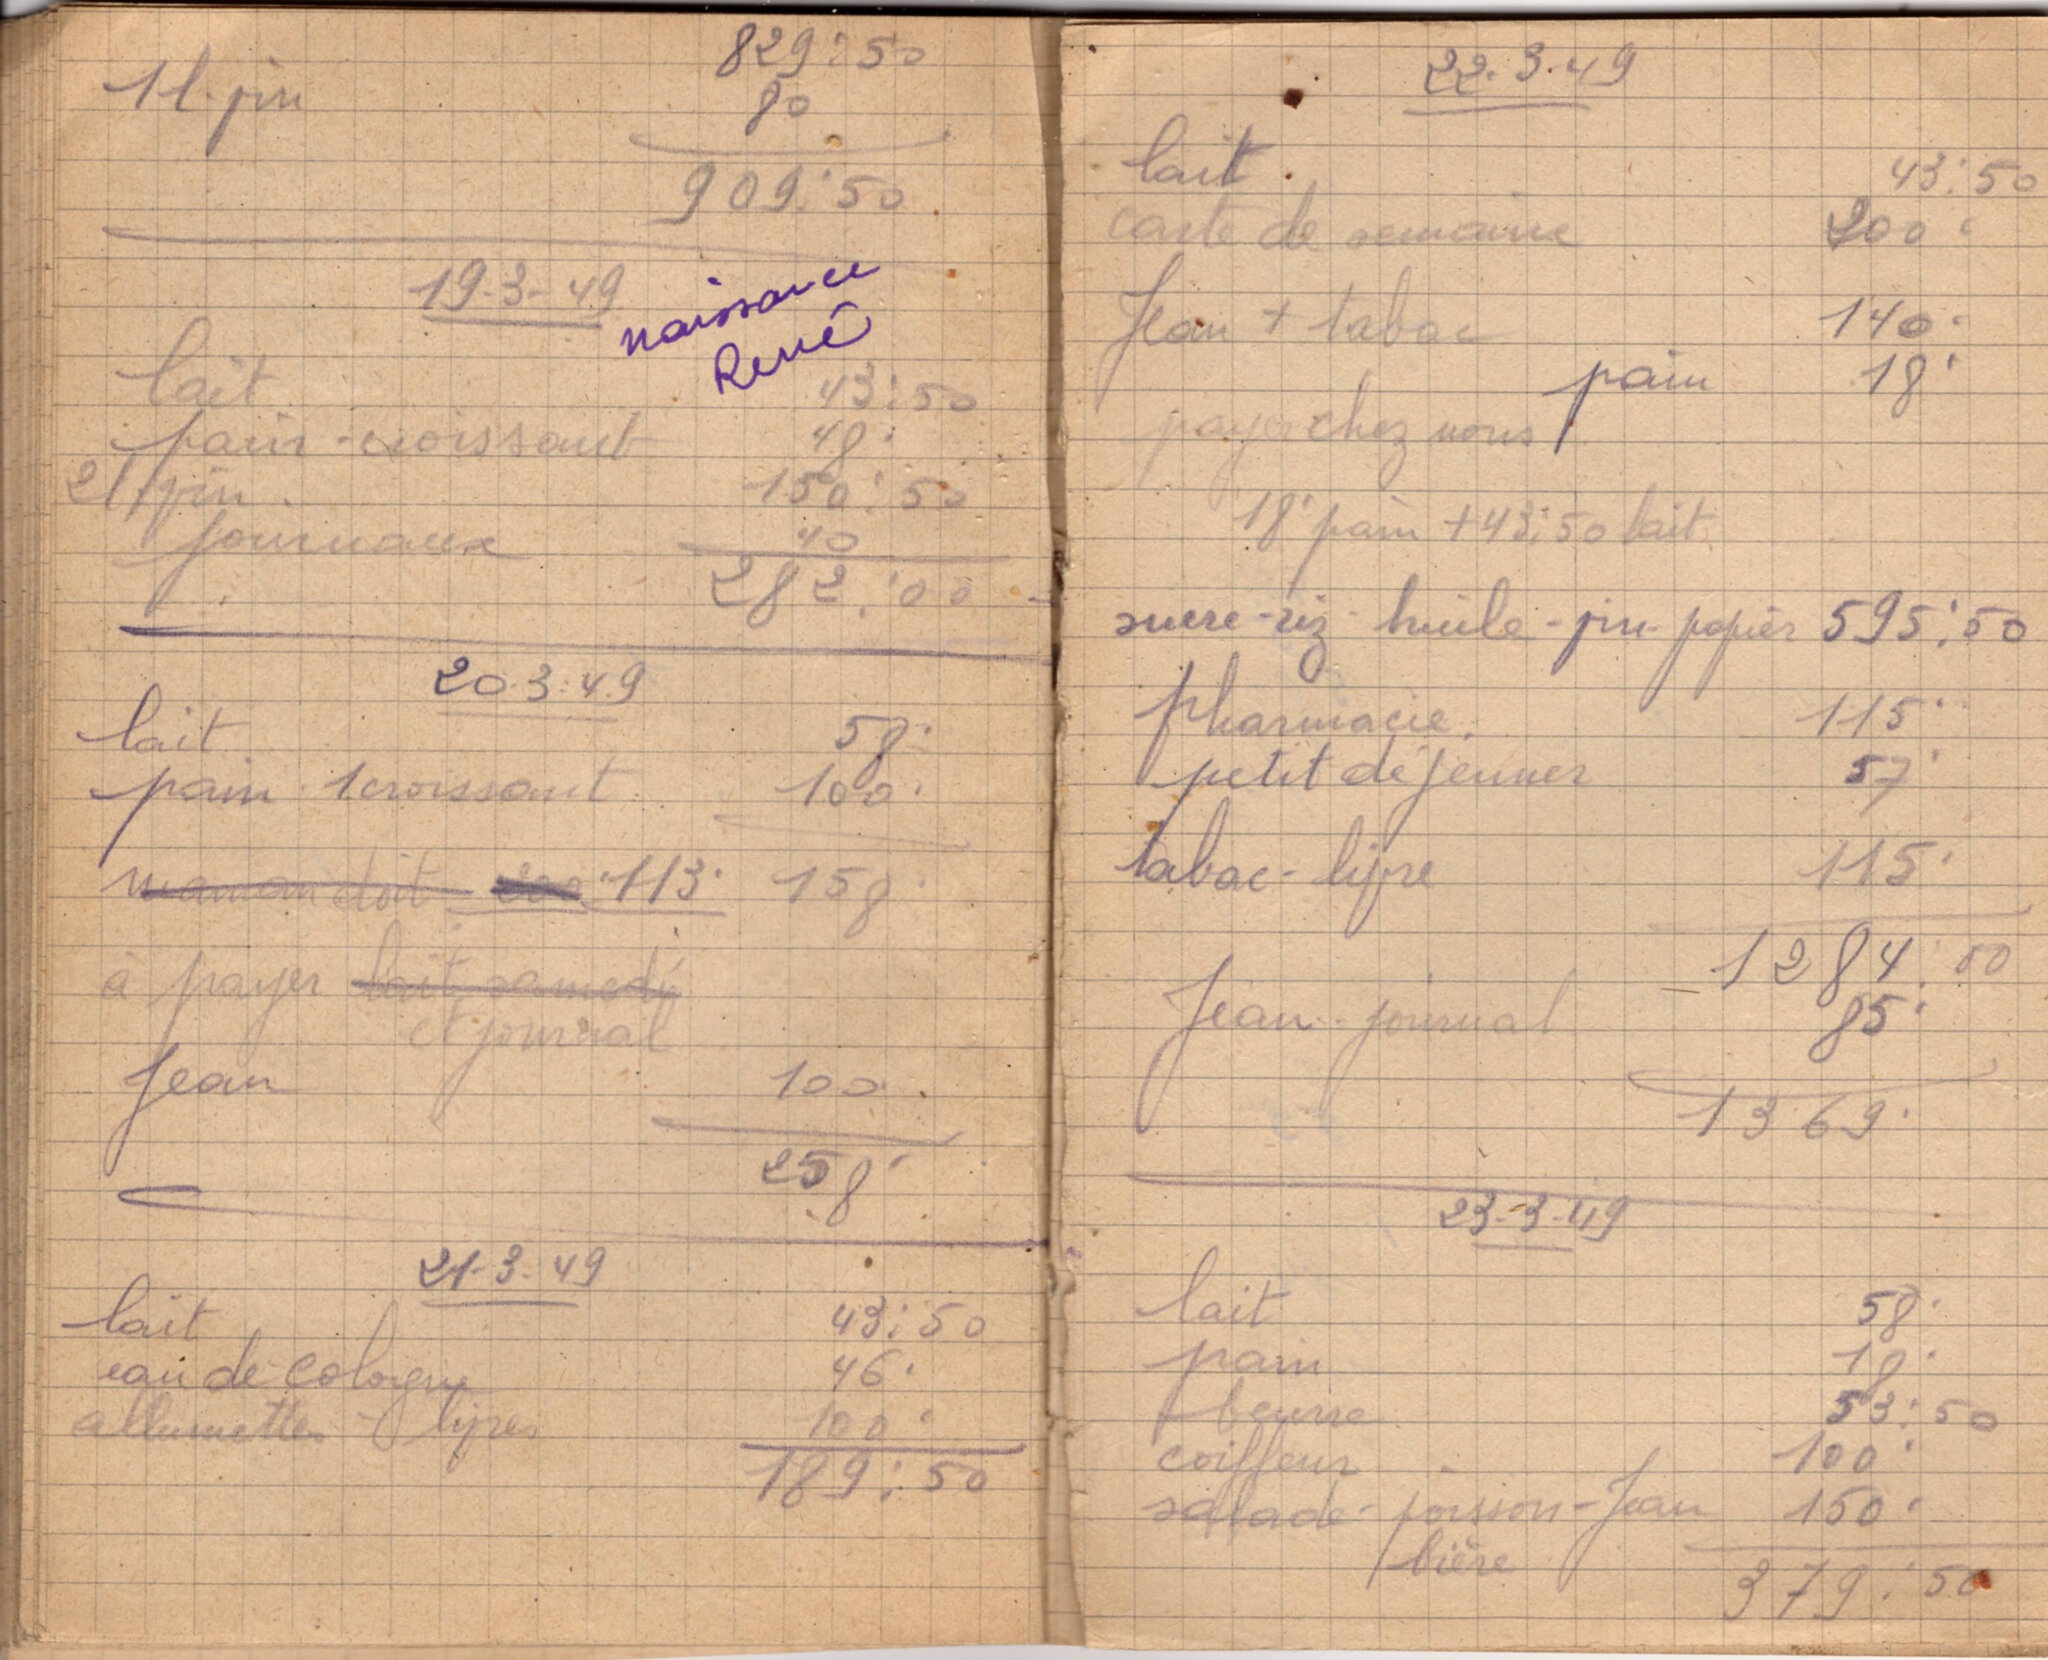 829:50
1 l. pin 80
909:50
19-3-49
naissance
René
lait 43:50
pain-croissant 48
2 l pin 150:50
journaux 40
282:00
20.3.49
lait 58
pain - 1 croissant 100
maman doit 113 158
à payer lait samedi
et journal
Jean 100
258
21-3-49
lait 43:50
eau de cologne 46
allumettes - lipes 100
189:50
22-3-49
lait 43:50
carte de semaine 200
Jean + tabac 140
pain 18
payer chez nous
18 pain + 43:50 lait
sucre-riz-huile-pin-papier 595:50
pharmacie 115
petit déjeuner 57
tabac - lipre 115
1284:50
Jean-journal 85
1369
23-3-49
lait 58
pain 18
beurre 53:50
coiffeur 100
salade-poisson-Jean 150
bière
379:50